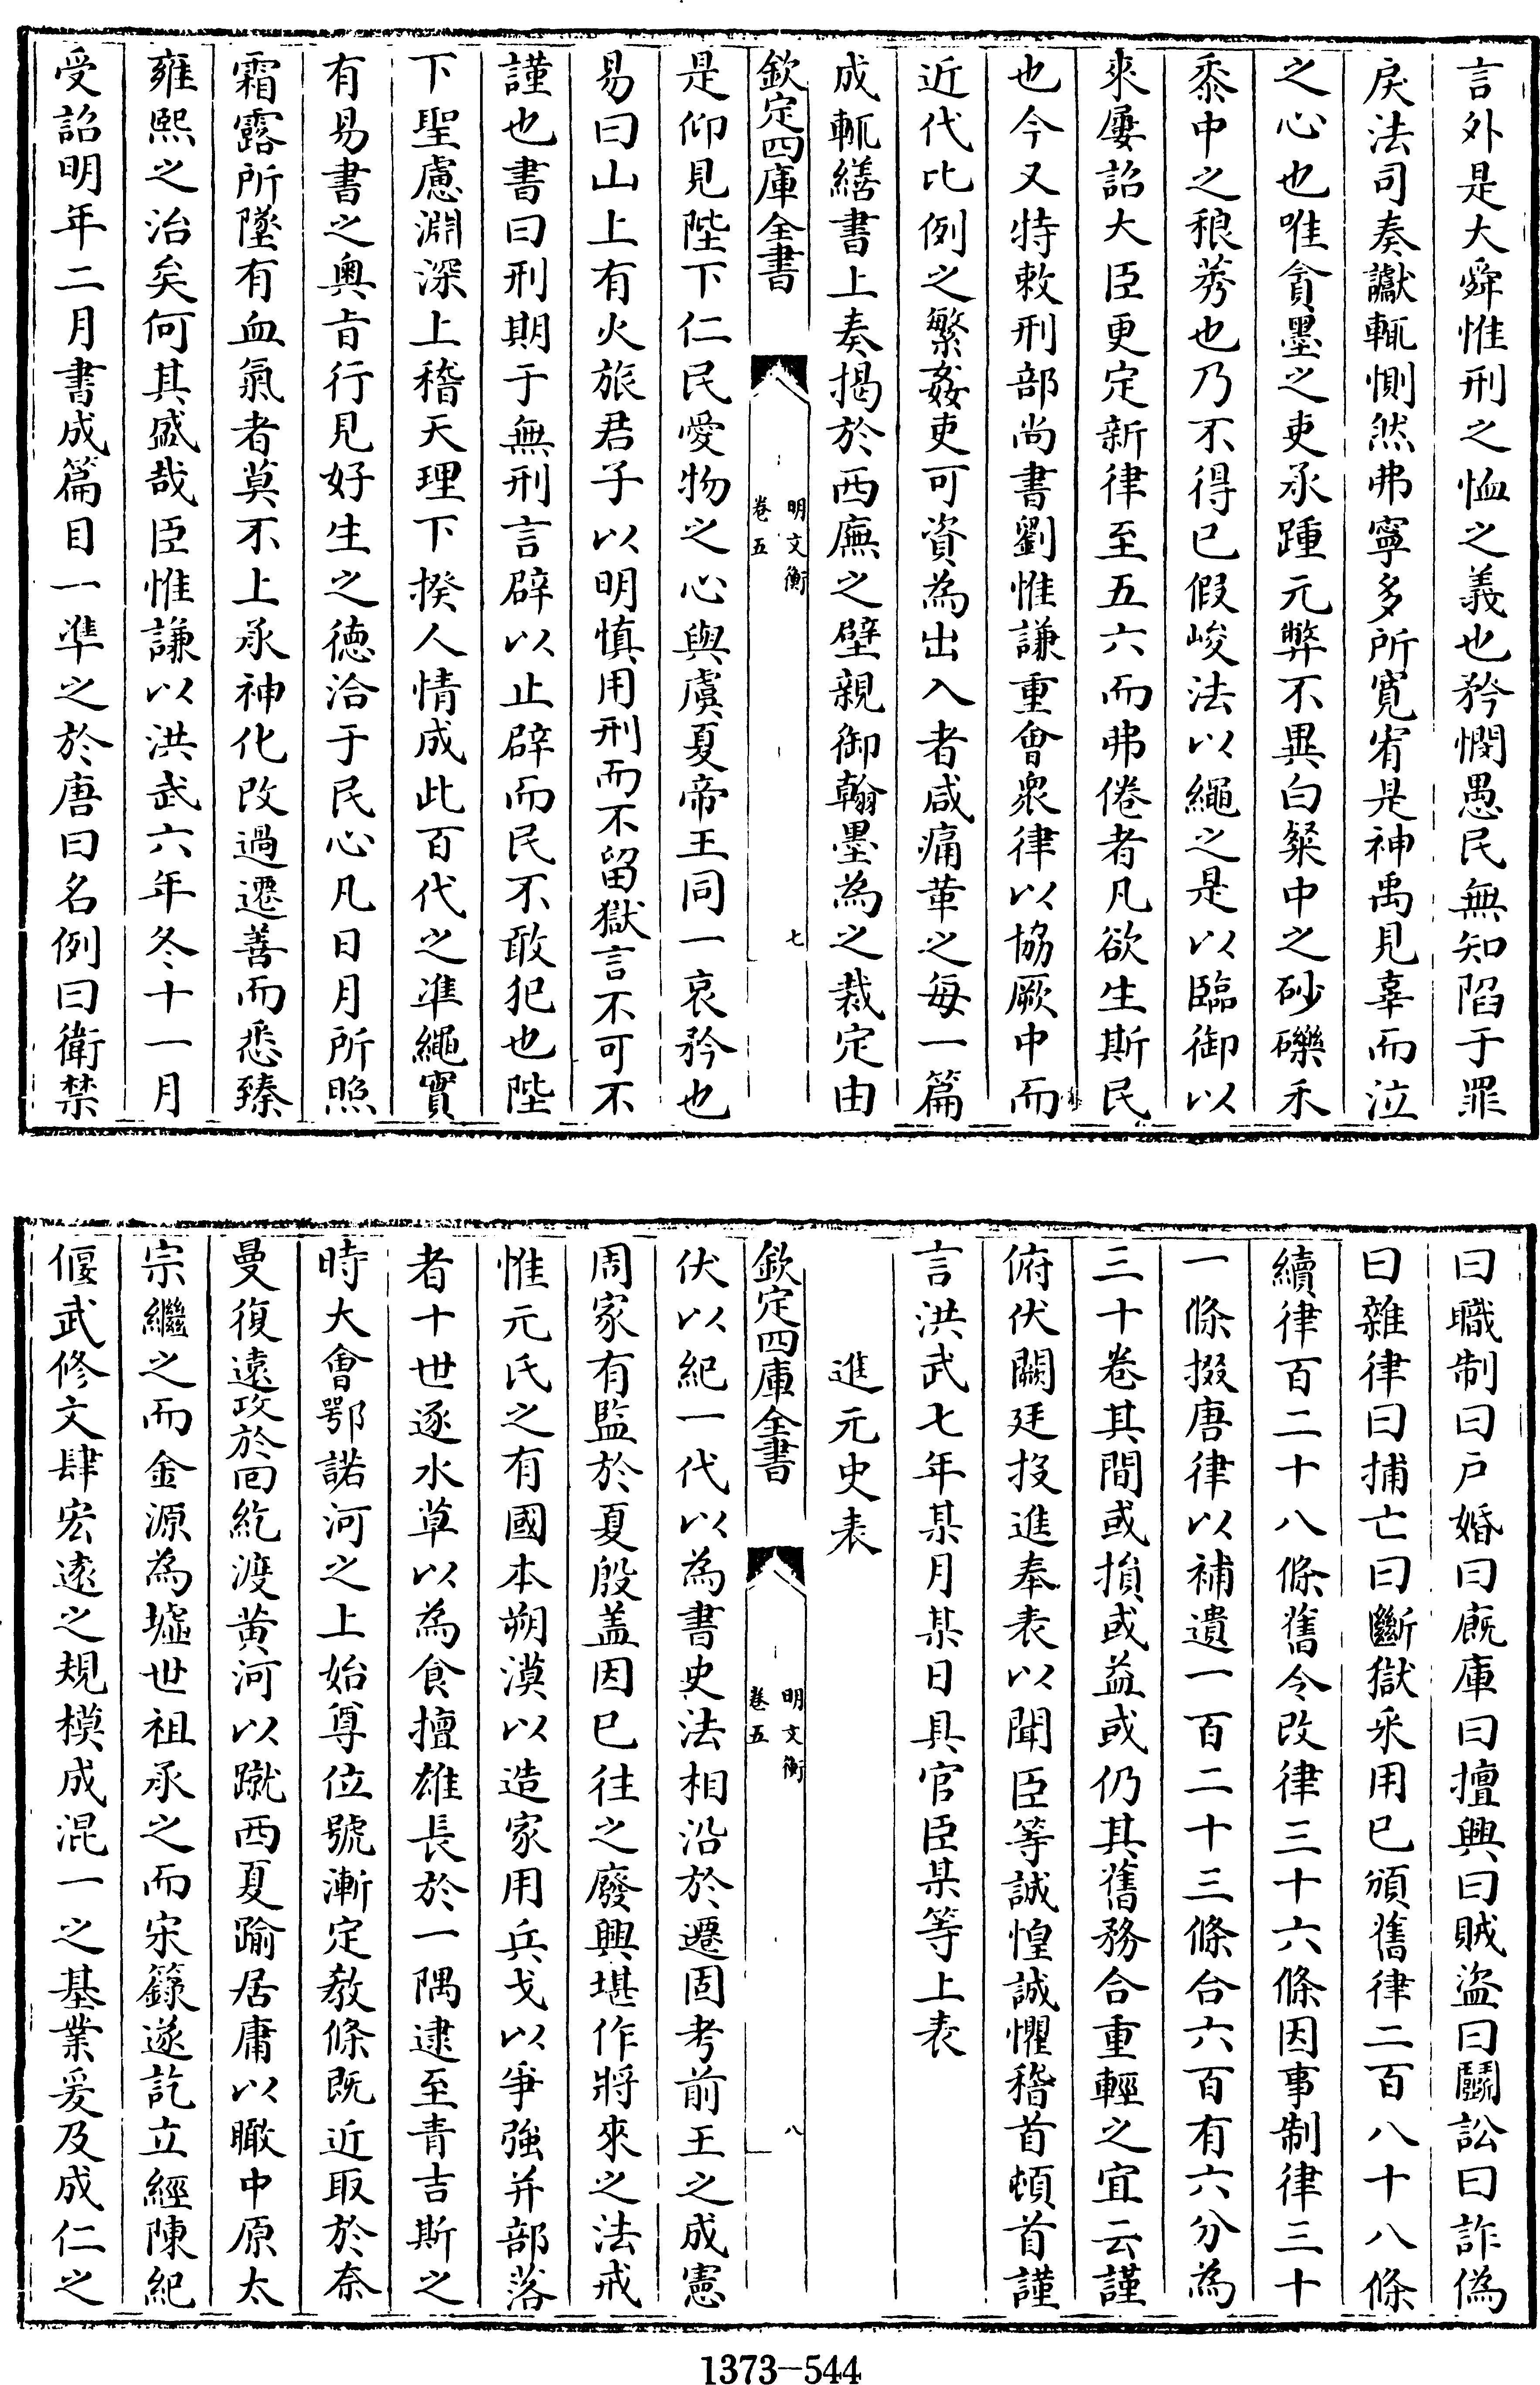 言外是大舜惟刑之恤之義也矜憫愚民無知陷于罪
戾法司奏讞輒惻然弗寧多所寬宥是神禹見辜而泣
之心也唯貪墨之吏承踵元弊不異白粲中之砂礫禾
黍中之稂莠也乃不得已假峻法以繩之是以臨御以
來屢詔大臣更定新律至五六而弗倦者凡欲生斯民
也今又特敕刑部尚書劉惟謙重會衆律以協厥中而
近代比例之繁姦吏可資為出入者咸痛革之每一篇
成輒繕書上奏揭於西廡之壁親御翰墨為之裁定由
欽定四庫全書
明文衡
卷五
七
是仰見陛下仁民愛物之心與虞夏帝王同一哀矜也
易曰山上有火旅君子以明慎用刑而不留獄言不可不
謹也書曰刑期于無刑言辟以止辟而民不敢犯也陛
下聖慮淵深上稽天理下揆人情成此百代之準繩實
有易書之奧旨行見好生之德洽于民心凡日月所照
霜露所墜有血氣者莫不上承神化改過遷善而悉臻
雍熙之治矣何其盛哉臣惟謙以洪武六年冬十一月
受詔明年二月書成篇目一準之於唐曰名例曰衛禁
曰職制曰户婚曰廐庫曰擅興曰賊盜曰鬬訟曰詐偽
曰雜律曰捕亡曰斷獄采用已頒舊律二百八十八條
續律百二十八條舊令改律三十六條因事制律三十
一條掇唐律以補遺一百二十三條合六百有六分為
三十卷其間或損或益或仍其舊務合重輕之宜云謹
俯伏闕廷投進奉表以聞臣等誠惶誠懼稽首頓首謹
言洪武七年某月某日具官臣某等上表
進元史表
欽定四庫全書
明文衡
卷五
八
伏以紀一代以為書史法相沿於遷固考前王之成憲
周家有監於夏殷盖因已往之廢興堪作將來之法戒
惟元氏之有國本朔漠以造家用兵戈以爭強并部落
者十世逐水草以為食擅雄長於一隅逮至青吉斯之
時大會鄂諾河之上始尊位號漸定教條既近取於奈
曼復遠攻於回紇渡黃河以蹴西夏踰居庸以瞰中原太
宗繼之而金源為墟世祖承之而宋籙遂訖立經陳紀
偃武修文肆宏遠之規模成混一之基業爰及成仁之
1373-544